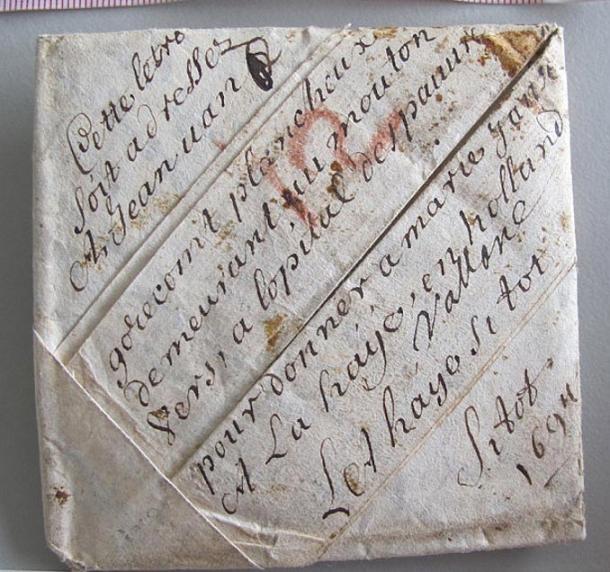 Cette letre
soit adresses
A Jean uan
gorecom't plancheux
demeurant uu mouton
vers, a lopital des pauure
pour donner a marie
A La haÿe, en holland
Vallone
Let haye si tot
si tot
1694
12